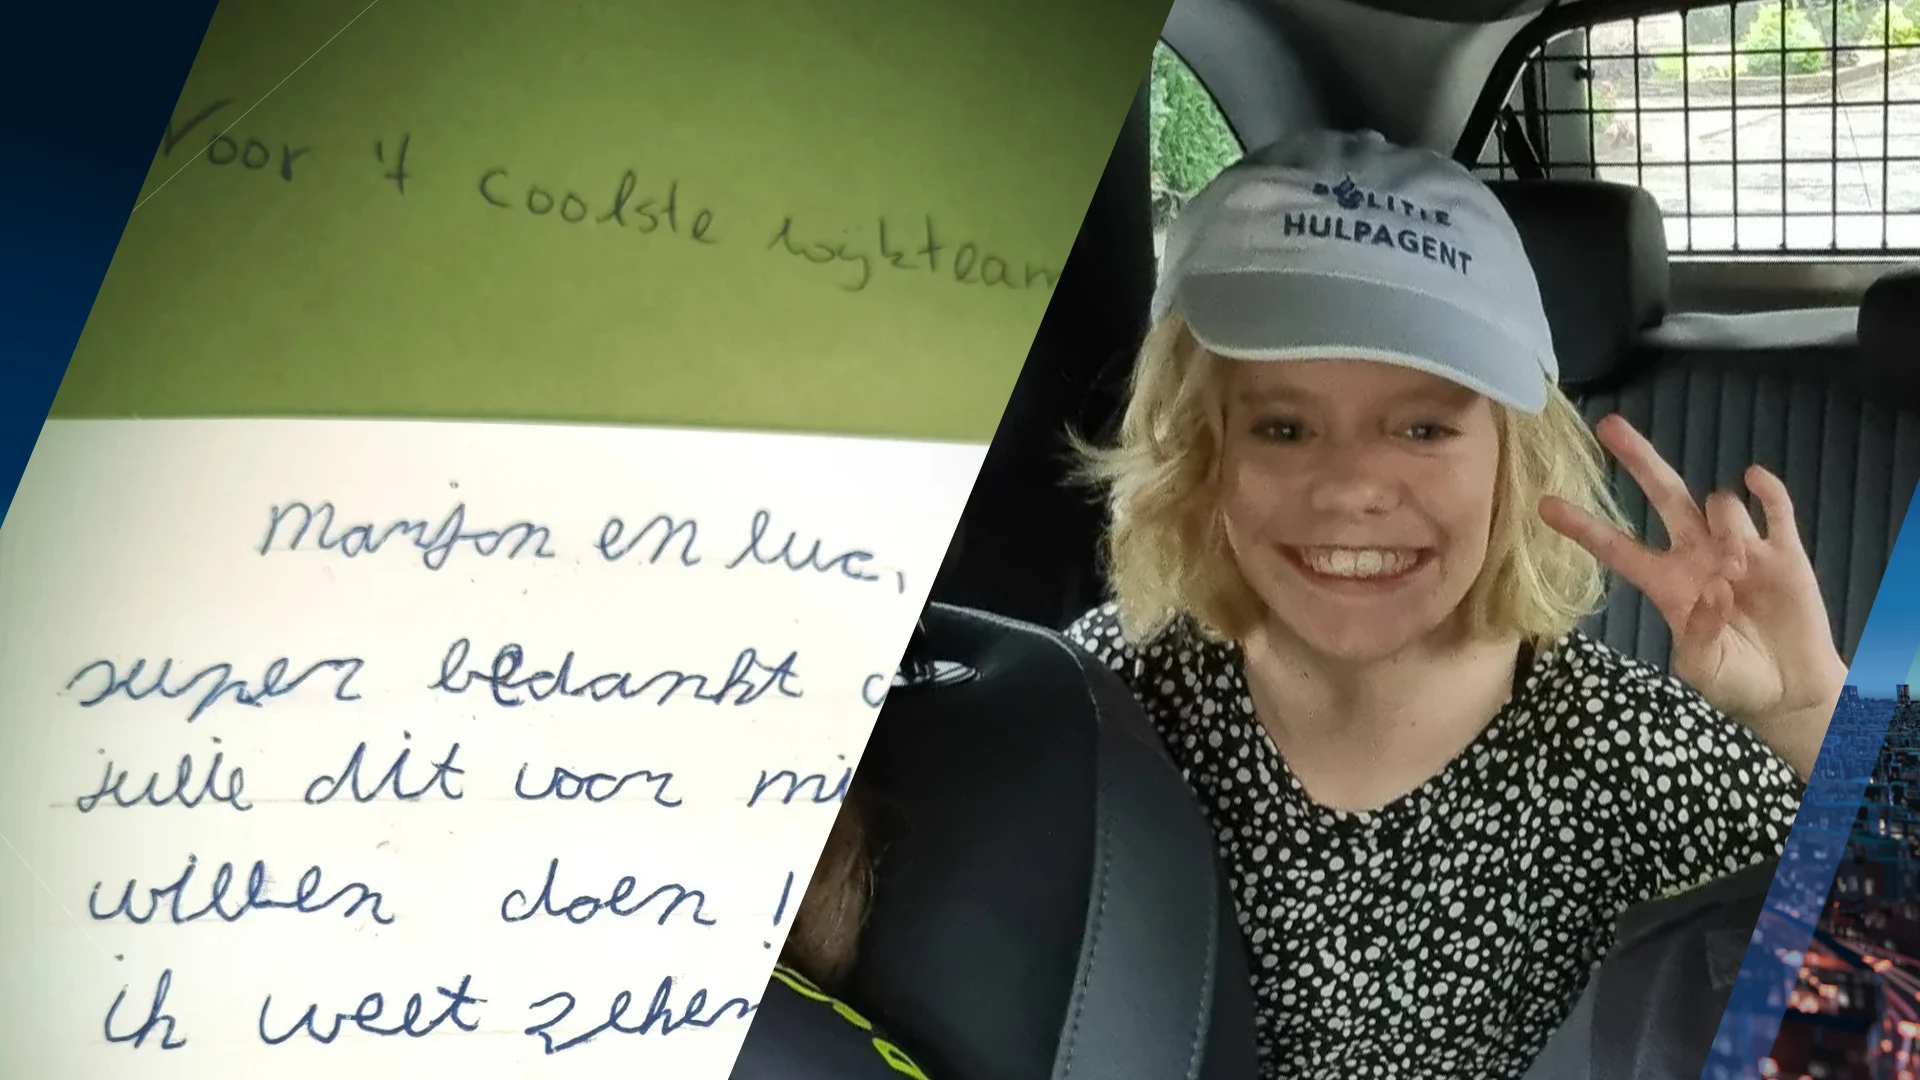 Voor 't coolste wijkteam
Marjon en Luc,
super bedankt d
jullie dit voor mi
willen doen!
ik weet zeker
POLITIE
HULPAGENT